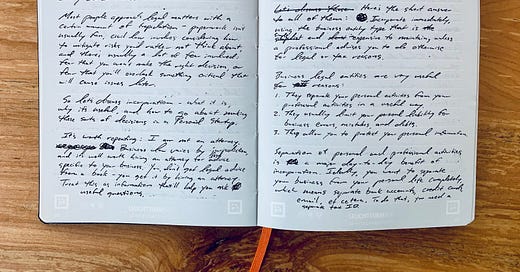 Most people approach legal matters with a
certain amount of trepidation - paperwork isn't
usually fun, and law involves considering how
to mitigate risks you'd rather not think about,
and there's usually a bit of fear involved:
fear that you won't make the right decision, or
fear that you'll overlook something critical that
will cause issues later.
So let's discuss incorporation - what it is,
why it's useful, and how to go about making
these sorts of decisions in a Personal Startup.
It's worth repeating: I am not an attorney
Business law varies by
and it's well worth hiring an attorney to advise
specific to your business. You don't get legal advice
from a book - you get it by hiring an attorney.
Treat this as information that'll help you ask
useful questions.
Here's the short answer
to all of them: Incorporate immediately,
using the business entity type that is the
expensive to maintain, unless
a professional advises you to do otherwise
for legal or tax reasons.
Business legal entities are very useful
for reasons:
1. They separate your personal activities from your
professional activities in a useful way.
2. They usually limit your personal liability for
business errors, mistakes, and debts.
3. They allow you to protect your personal information
Separation of personal and professional activities
is a major day-to-day benefit of
incorporation. Ideally, you want to separate
your business from your personal life completely,
which means separate bank accounts, credit cards,
email, et cetera. To do this, you need a
separate tax ID.
LEUCHTTURM